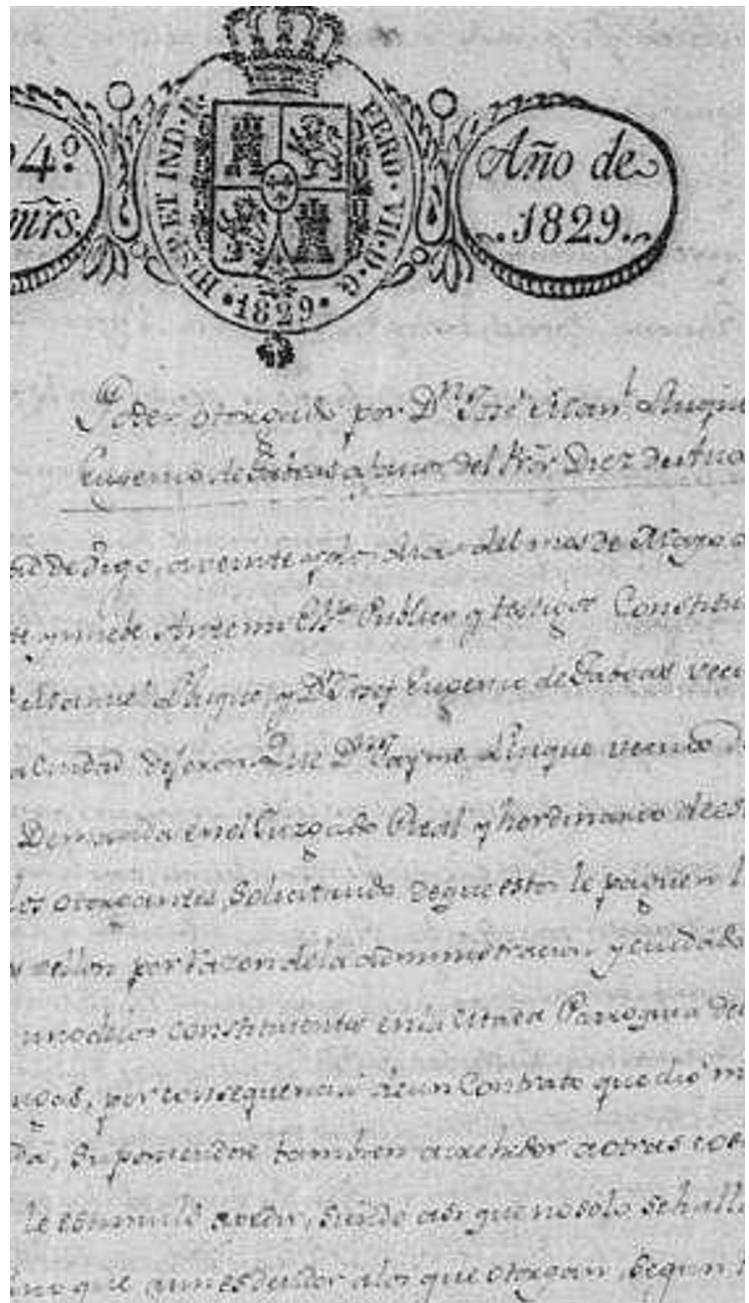 4º
mrs.
HISP. ET IND. R.
FERD. VII. D. G.
1829
Año de
1829
Poder otorgado por Dn José Manl Luque
Eugenio de a favor del Sor Diez de
de Vigo, a veinte y dias del mes de Mayo
nuebe Antemi Publico y testigos Constitu
Manuel Luque, y Dn Josef Eugenio de veci
ciudad dijeron Que Dn Jayme Luque vecino
Demanda en el Juzgado Real y hordinario de es
los otorgantes, solicitando de que estos le paguen l
vellon por razon de la administracion y cuidado
uno de los constituentes en la citada Parroquia de
por consequencia de un Contrato que dio m
suponiendose tambien acrehedor a otras cos
le siendo asi que no solo se hall
que aun es deudor a los que otorgan, segun